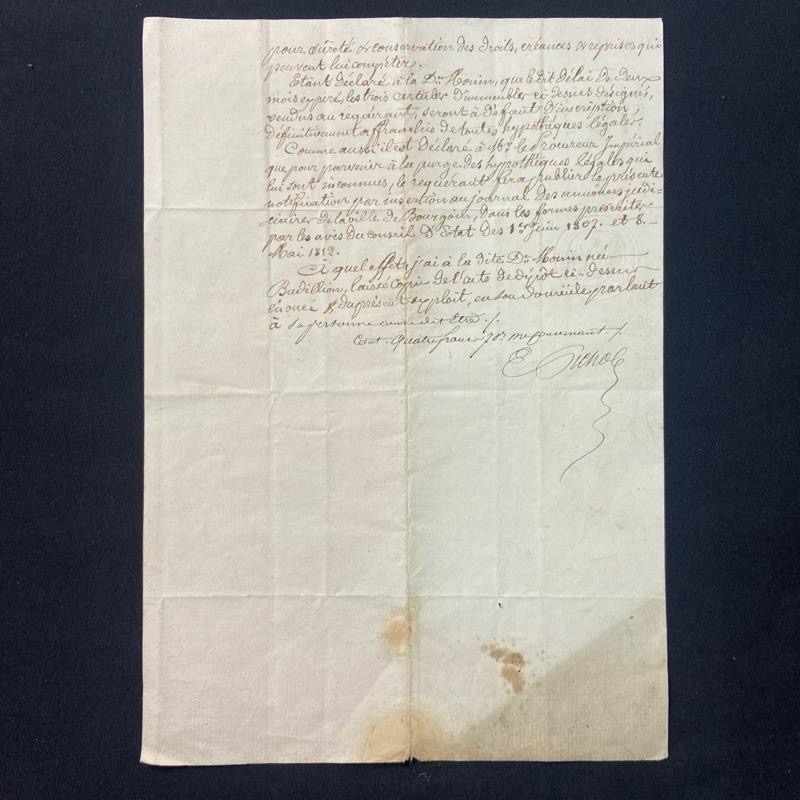 pour sûreté & conservation des droits, créances & reprises qui
peuvent lui compéter.
Etant déclaré à la De. Monin, que ledit délai de deux
mois expiré, les trois articles d'immeubles ci-dessus désignés,
vendus au requérant, seront à défaut d'inscription,
définitivement affranchis de toutes hypothèques légales.
Comme aussi il est déclaré à Mr. le Procureur Impérial
que pour parvenir à la purge des hypothèques légales qui
lui sont inconnues, le requérant fera publier la présente
notification par insertion au journal des annonces judi-
-ciaires de la ville de Bourgoin, dans les formes prescrites
par les avis du conseil D'Etat des 1er Juin 1807. et 8.
Mai 1812.
A quel effet, j'ai à la dite De. Monin née
Badillion, laissé copie de l'acte de dépôt ci-dessus
énoncé & du présent exploit, en son domicile parlant
à sa personne
Cout. Quatre francs